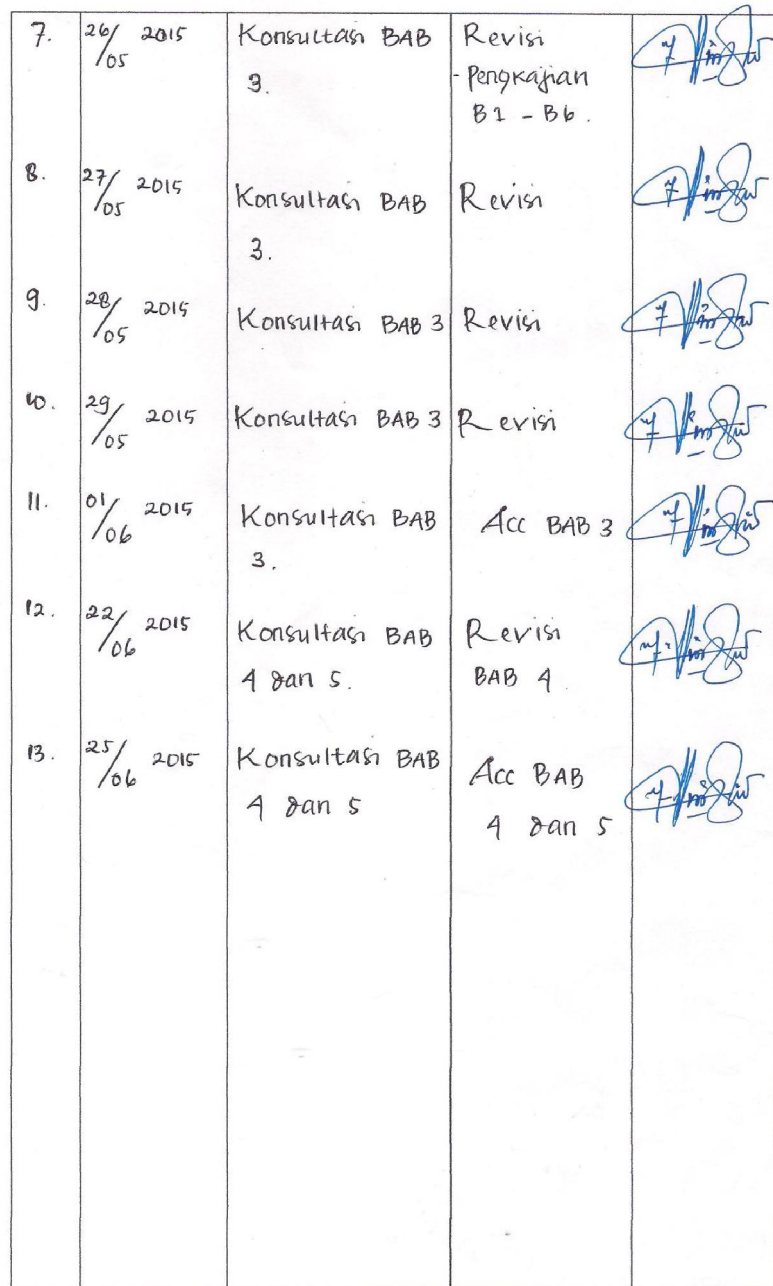 7. 26/05 2015 Konsultasi BAB Revisi
3. - Pengkajian
B1 - B6.
8. 27/05 2015 Konsultasi BAB Revisi
3.
9. 28/05 2015 Konsultasi BAB 3 Revisi
10. 29/05 2015 Konsultasi BAB 3 Revisi
11. 01/06 2015 Konsultasi BAB Acc BAB 3
3.
12. 22/06 2015 Konsultasi BAB Revisi
4 dan 5. BAB 4
13. 25/06 2015 Konsultasi BAB Acc BAB
4 dan 5 4 dan 5